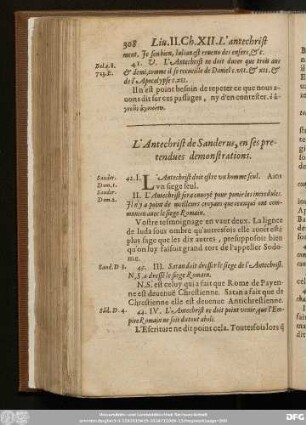 308 Liu.II.Ch.XII. L'antechrist
ment. Je sçay bien, Iulian est venu des enfers, &c.
41. V. L'Antechrist ne doit durer que trois ans
& demi, comme il se recueille de Daniel c.vii. & xii. &
de l'Apocalypse c.xii.
Il n'est point besoin de repeter ce que nous a-
uons dit sur ces passages, ny d'en contester.
L'Antechrist de Sanderus, en ses pre-
tendues demonstrations.
Sander.
Dem.1.
Sander.
Dem.2.
42. I. L'Antechrist doit estre vn homme seul.
vn siege seul.
II. L'Antechrist sera enuoyé pour punir les incredules.
Il n'y a point de meilleurs croyans que ceux qui ont com-
munion auec le siege Romain.
Vostre tesmoignage en vaut deux. La lignee
de Iuda sous ombre qu'autresfois elle auoit esté
plus sage que les dix autres, presupposoit bien
qu'on luy faisoit grand tort de l'appeller Sodo-
me.
Sand.D 3. 43. III. Satan doit dresser le siege de l'Antechrist.
N.S. a dressé le siege Romain.
N.S. est celuy qui a fait que Rome de Payen-
ne est deuenue Chrestienne. Satan a fait que de
Chrestienne elle est deuenue Antichrestienne.
D. 4. 44. IV. L'Antechrist ne doit point venir, que l'Em-
pire Romain ne soit du tout aboli.
L'Escriture ne dit point cela. Toutesfois lors q
DFG